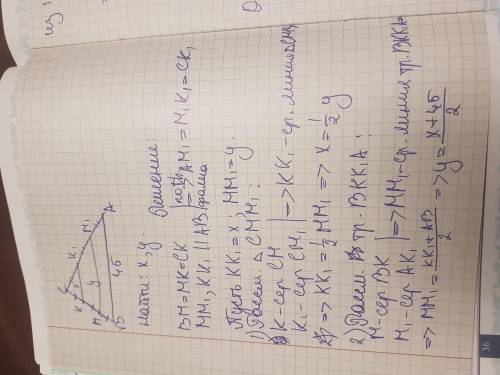 из
Найти: x, y.
Решение:
BM=MK=CK
MM₁, KK₁ || AB | по т. Фалеса => AM₁=M₁K₁=CK₁
Пусть KK₁=x; MM₁=y.
1) Рассм. △ CMM₁:
K-сер CM
K₁-сер CM₁ | => KK₁-ср. линия △CMM₁
=> KK₁=½MM₁ => x=½y
2) Рассм. тр. BKK₁A:
M-сер. BK
M₁-сер AK₁ | => MM₁-ср. линия тр. BKK₁A
=> MM₁=(KK₁+AB)/2 => y=(x+45)/2
C
K
K₁
x
M
M₁
y
B
A
45
36